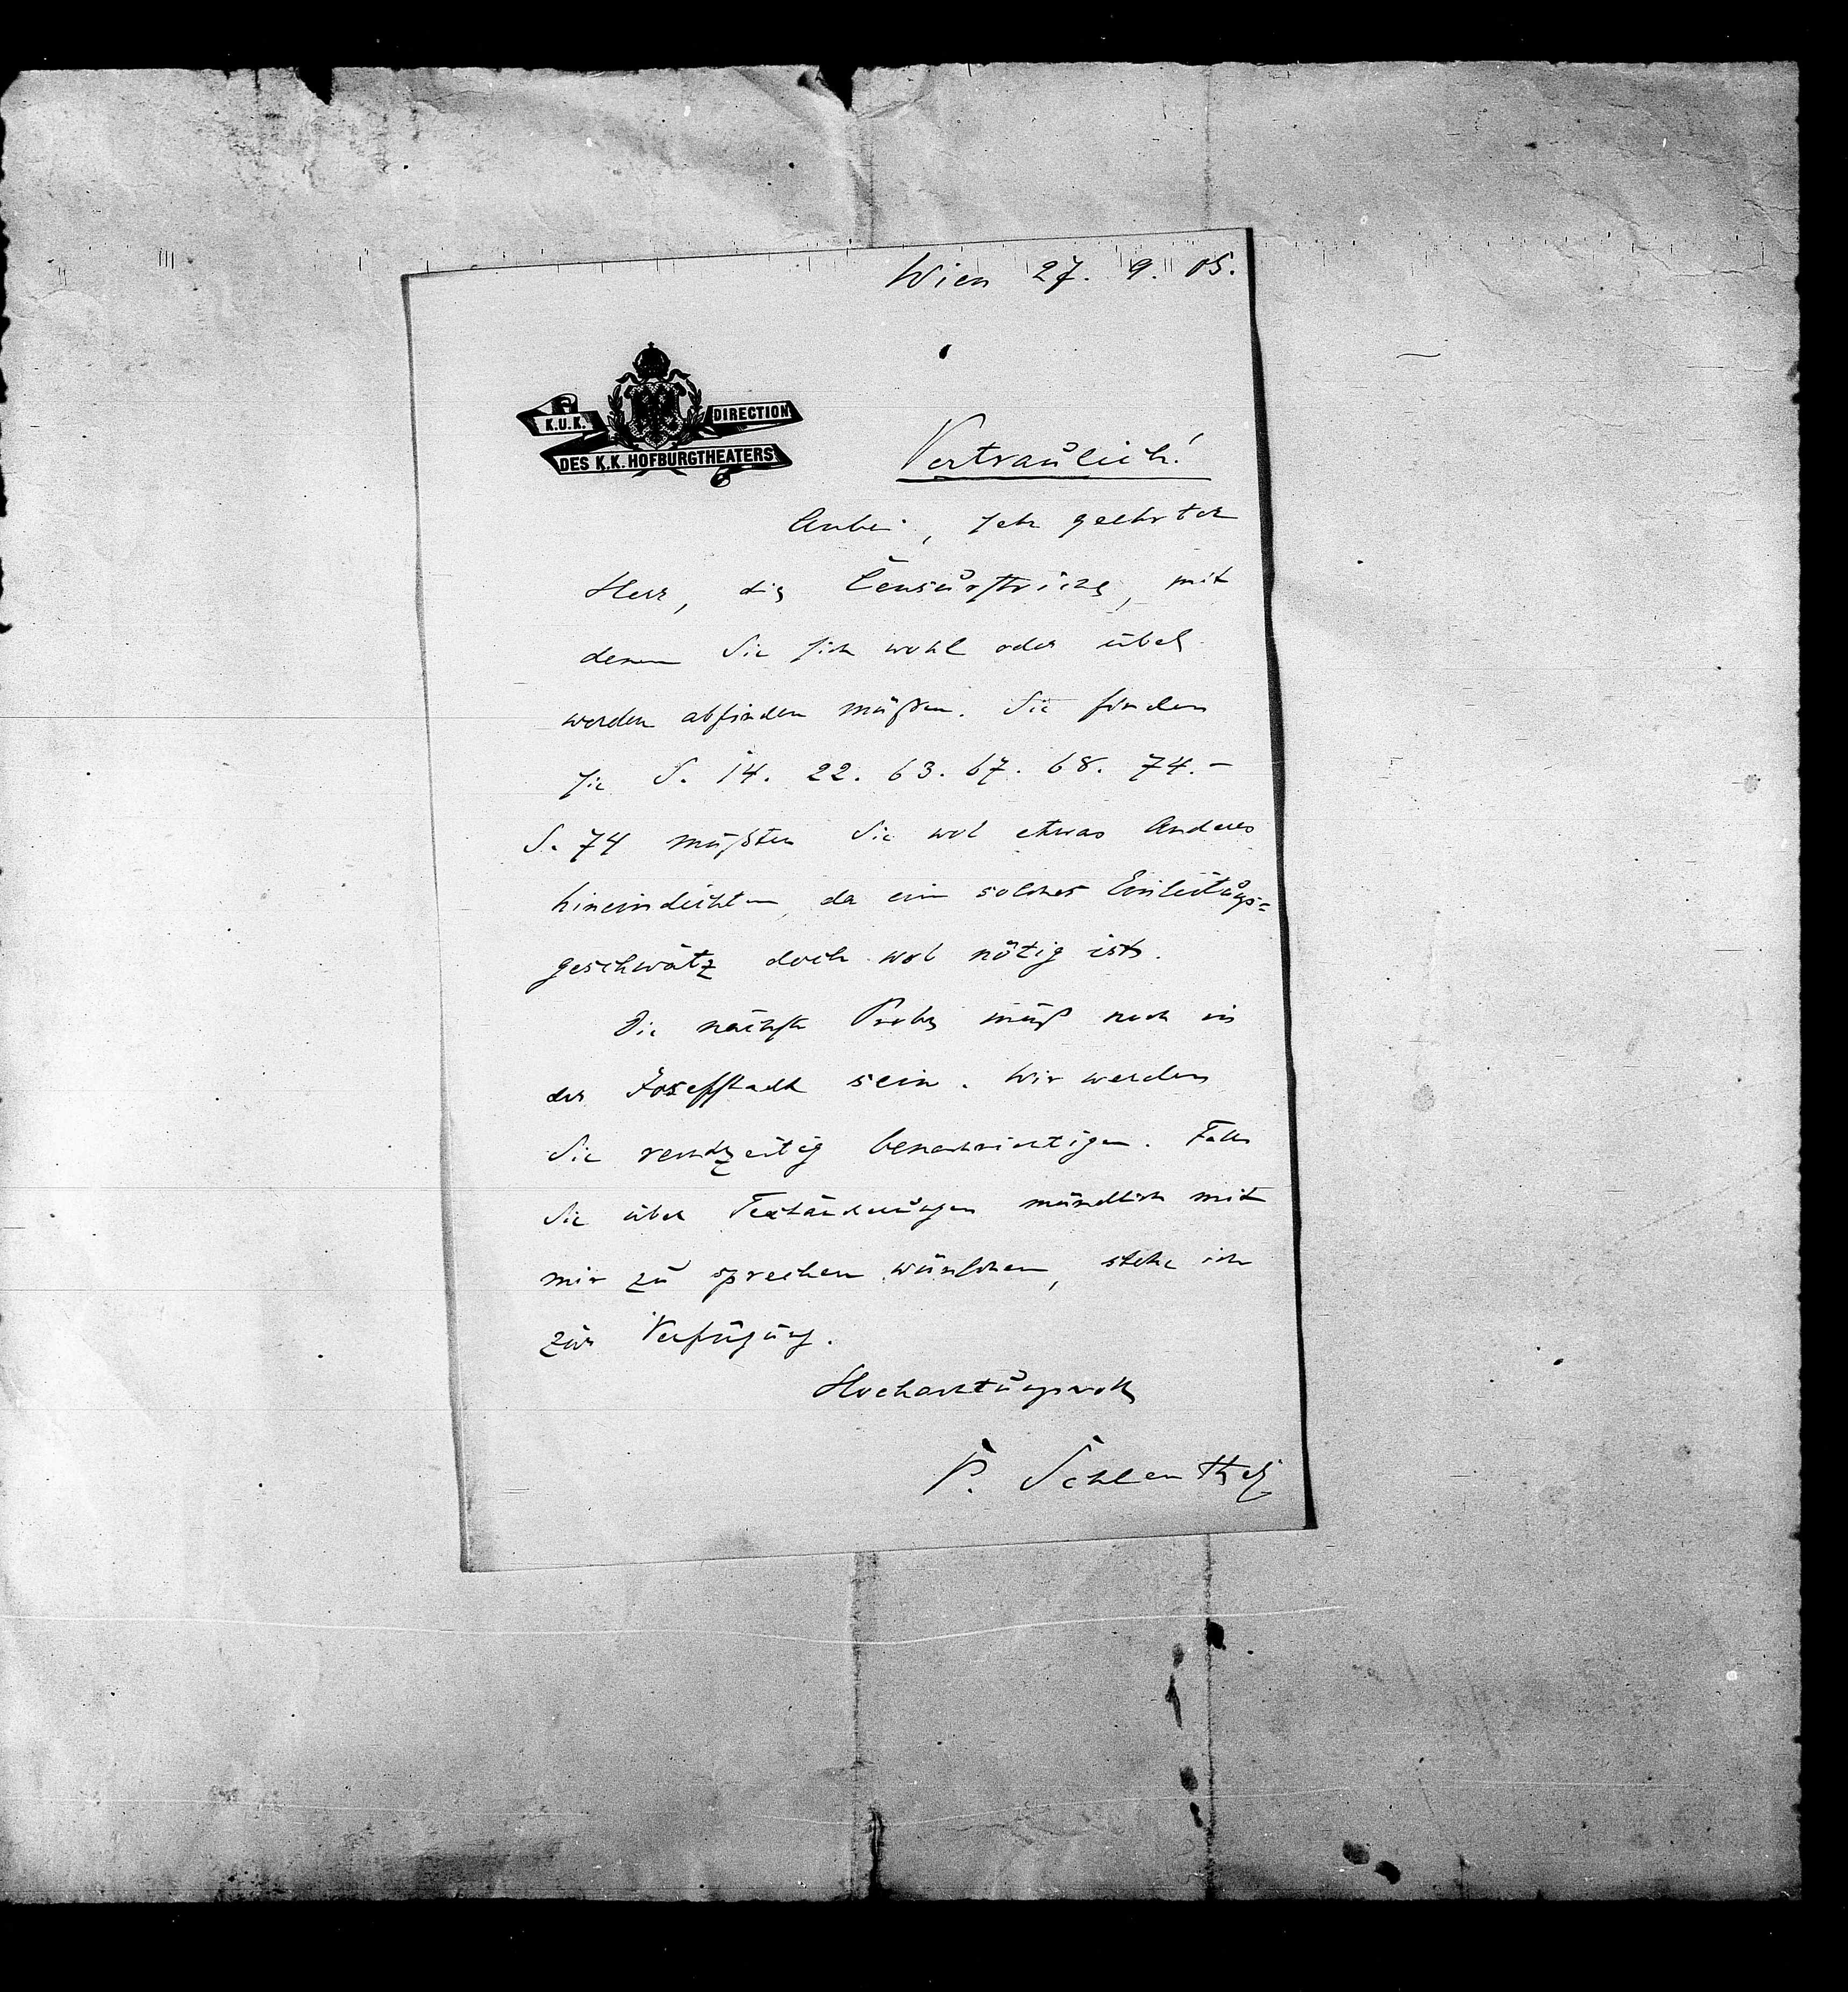 Wien 27. 9. 05.
K.U.K. DIRECTION
DES K.K. HOFBURGTHEATERS
Vertraulich!
Anbei, sehr geehrter
Herr, die Censurstriche, mit
denen Sie sich wohl oder übel
werden abfinden müßen. Sie finden
sie S. 14. 22. 63. 67. 68. 74.–
S. 74 müßten Sie wol etwas Anderes
hineindichten, da ein solches Einleitungs=
geschwätz doch wol nötig ist.
Die nächste Probe muß noch in
der Josefstadt sein. Wir werden
Sie rechtzeitig benachrichtigen. Falls
Sie über Textänderungen mündlich mit
mir zu sprechen wünschen, stehe ich
zur Verfügung.
Hochachtungsvoll
P. Schlenther